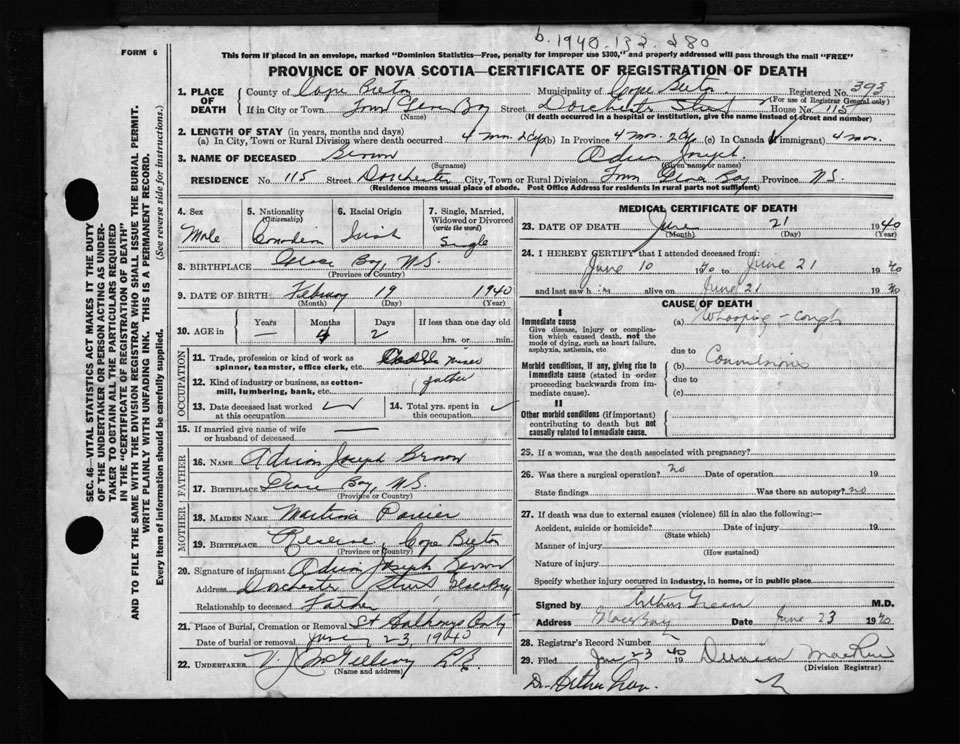 b. 1940. 132. 280
FORM 6
This form if placed in an envelope, marked "Dominion Statistics—Free, penalty for improper use $300," and properly addressed will pass through the mail "FREE"
PROVINCE OF NOVA SCOTIA—CERTIFICATE OF REGISTRATION OF DEATH
SEC. 46—VITAL STATISTICS ACT MAKES IT THE DUTY
OF THE UNDERTAKER OR PERSON ACTING AS UNDER-
TAKER TO OBTAIN ALL THE PARTICULARS REQUIRED
IN THE "CERTIFICATE OF REGISTRATION OF DEATH"
AND TO FILE THE SAME WITH THE DIVISION REGISTRAR WHO SHALL ISSUE THE BURIAL PERMIT.
WRITE PLAINLY WITH UNFADING INK. THIS IS A PERMANENT RECORD.
Every item of information should be carefully supplied. (See reverse side for instructions.)
1. PLACE OF DEATH County of Cape Breton Municipality of Cape Breton Registered No. 393
(For use of Registrar General only)
If in City or Town Town Glace Bay Street Dorchester Street House No. 115
(Name) (If death occurred in a hospital or institution, give the name instead of street and number)
2. LENGTH OF STAY (in years, months and days)
(a) In City, Town or Rural Division where death occurred 4 mon. 2 dys (b) In Province 4 mos. 2 dys (c) In Canada (if immigrant) 4 mon.
3. NAME OF DECEASED Brown Adrian Joseph.
(Surname) (Given name or names)
RESIDENCE No. 115 Street Dorchester City, Town or Rural Division Town Glace Bay Province N.S.
(Residence means usual place of abode. Post Office Address for residents in rural parts not sufficient)
4. Sex
Male
5. Nationality
(Citizenship)
Canadian
6. Racial Origin
Irish
7. Single, Married,
Widowed or Divorced
(write the word)
Single
8. BIRTHPLACE Glace Bay, N.S.
(Province or Country)
9. DATE OF BIRTH February 19 1940
(Month) (Day) (Year)
10. AGE in Years Months Days If less than one day old
— 4 2 hrs. or min.
OCCUPATION
11. Trade, profession or kind of work as
spinner, teamster, office clerk, etc. Miner
12. Kind of industry or business, as cotton-
mill, lumbering, bank, etc. (father
13. Date deceased last worked
at this occupation
14. Total yrs. spent in
this occupation
15. If married give name of wife
or husband of deceased
FATHER
16. NAME Adrian Joseph Brown
17. BIRTHPLACE Glace Bay, N.S.
(Province or Country)
MOTHER
18. MAIDEN NAME
19. BIRTHPLACE Reserve, Cape Breton
(Province or Country)
20. Signature of informant Adrian Joseph Brown
Address Dorchester Street Glace Bay
Relationship to deceased Father
21. Place of Burial, Cremation or Removal St Anthonys
Date of burial or removal June 23, 1940
22. UNDERTAKER V. J. McGillivray
(Name and address)
MEDICAL CERTIFICATE OF DEATH
23. DATE OF DEATH June 21 1940
(Month) (Day) (Year)
24. I HEREBY CERTIFY that I attended deceased from:
June 10 1940 to June 21 1940
and last saw him alive on June 21 1940
CAUSE OF DEATH
I
Immediate cause (a) Whooping-cough
Give disease, injury or complica-
tion which caused death, not the
mode of dying, such as heart failure,
asphyxia, asthenia, etc.
due to
Convulsions
Morbid conditions, if any, giving rise to
immediate cause (stated in order
proceeding backwards from im-
mediate cause).
due to
(c)
II
Other morbid conditions (if important)
contributing to death but not
causally related to immediate cause.
25. If a woman, was the death associated with pregnancy?
26. Was there a surgical operation? no Date of operation 19
State findings Was there an autopsy? no
27. If death was due to external causes (violence) fill in also the following:—
Accident, suicide or homicide? Date of injury 19
(State which)
Manner of injury
(How sustained)
Nature of injury
Specify whether injury occurred in industry, in home, or in public place
Signed by Arthur Green M.D.
Address Glace Bay Date June 23 1940
28. Registrar's Record Number
29. Filed Jun 23 1940
(Division Registrar)
Dr. Arthur Green.